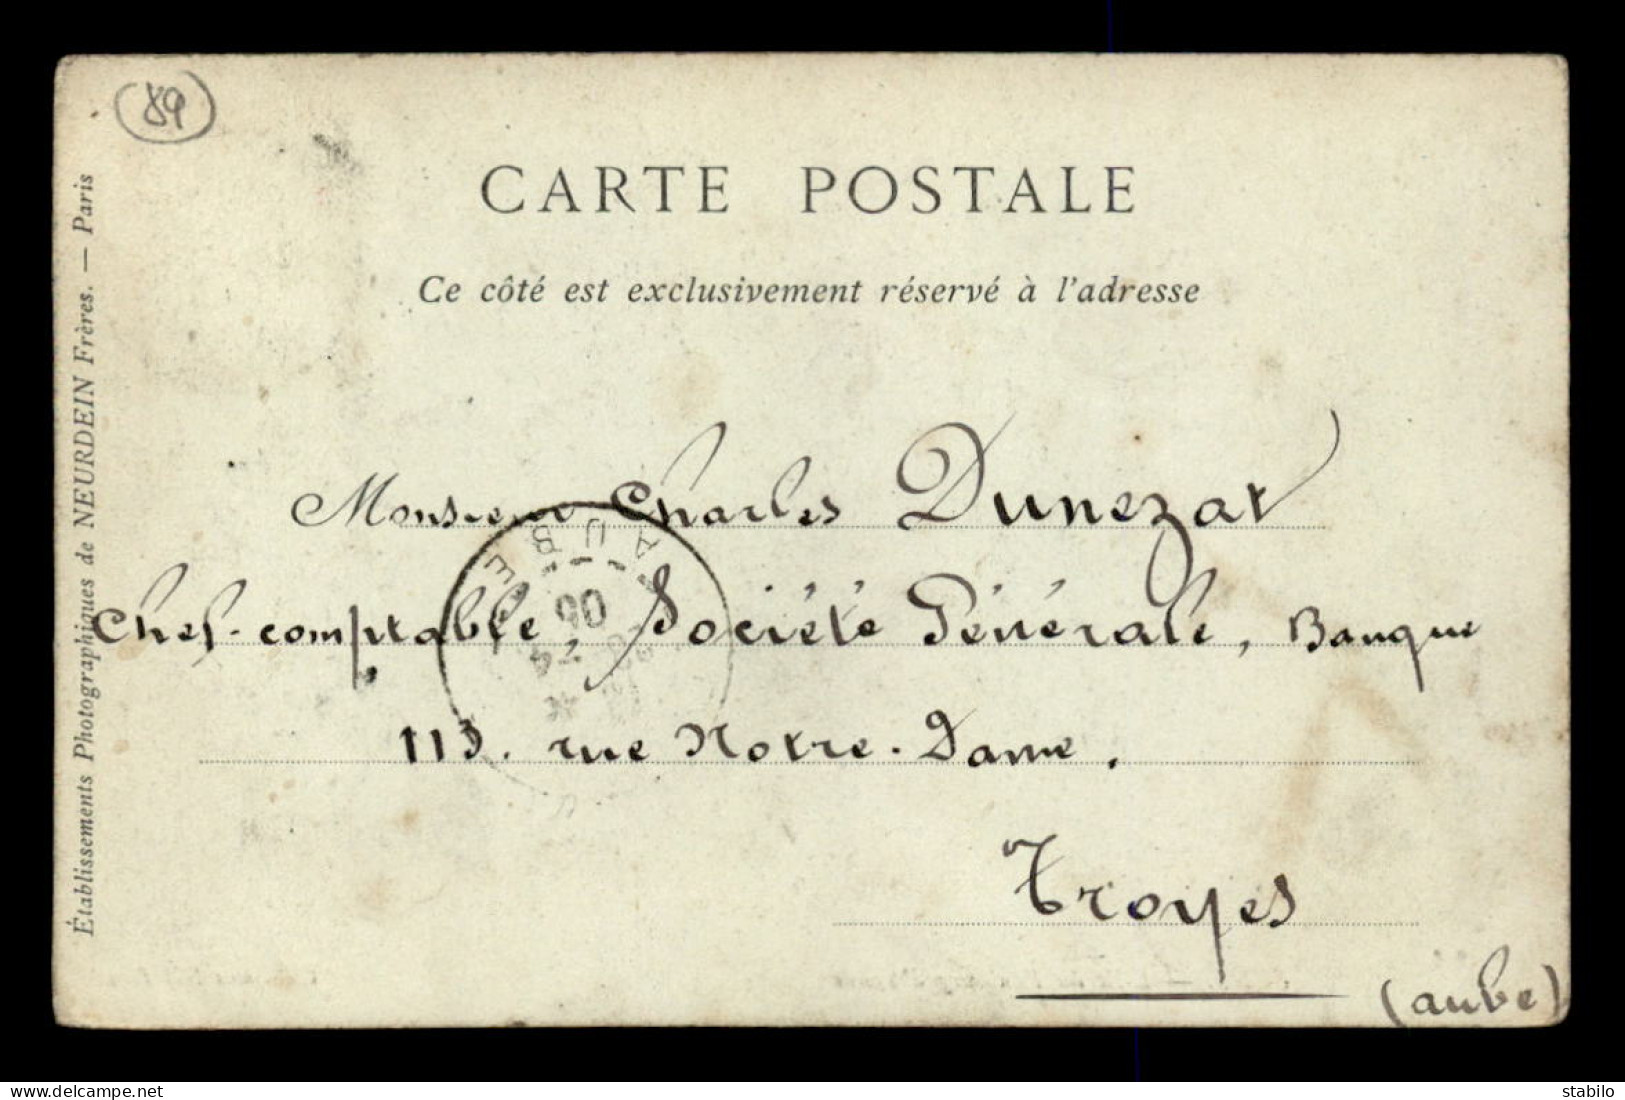 89
CARTE POSTALE
Ce côté est exclusivement réservé à l'adresse
Établissements Photographiques de NEURDEIN Frères. — Paris
Monsieur Charles Dunezat
Chef-comptable, Société Générale, Banque
113. rue Notre-Dame.
Troyes
(aube)
AUBE
06
delcampe.net
stabilo